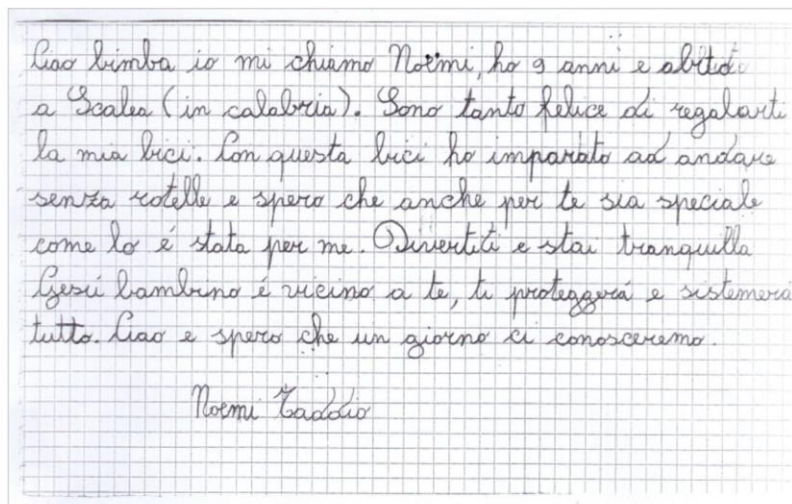 Ciao bimba io mi chiamo Noemi, ho 9 anni e abito
a Scalea (in calabria). Sono tanto felice di regalarti
la mia bici. Con questa bici ho imparato ad andare
senza rotelle e spero che anche per te sia speciale
come lo é stata per me. Divertiti e stai tranquilla
Gesú bambino é vicino a te, ti proteggerá e sistemerá
tutto. Ciao e spero che un giorno ci conosceremo.
Noemi Taddio